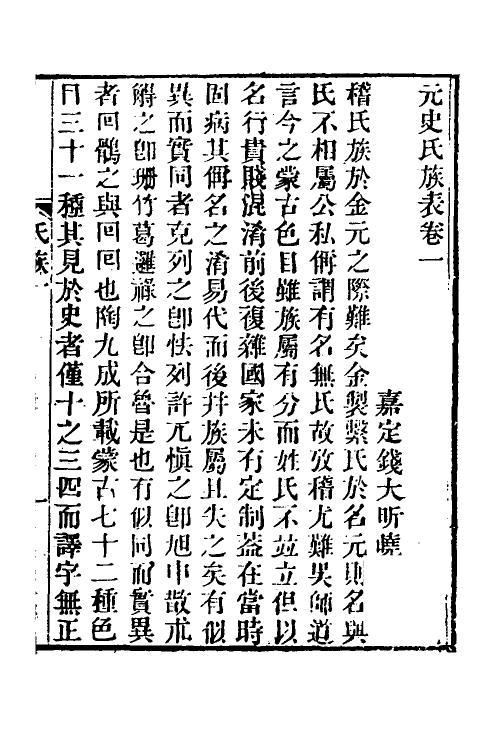 元史氏族表卷一
嘉定錢大昕譔
稽氏族於金元之際難矣金製繫氏於名元則名與
氏不相屬公私偁謂有名無氏故攷稽尤難吳師道
言今之蒙古色目雖族屬有分而姓氏不竝立但以
名行貴賤混淆前後複雜國家未有定制葢在當時
固病其偁名之淆易代而後幷族屬且失之矣有似
異而實同者克列之卽怯列許兀慎之卽旭申散朮
䚟之卽珊竹葛邏祿之卽合魯是也有似同而實異
者回鶻之與回回也陶九成所載蒙古七十二種色
目三十一種其見於史者僅十之三四而譯字無正
氏族一